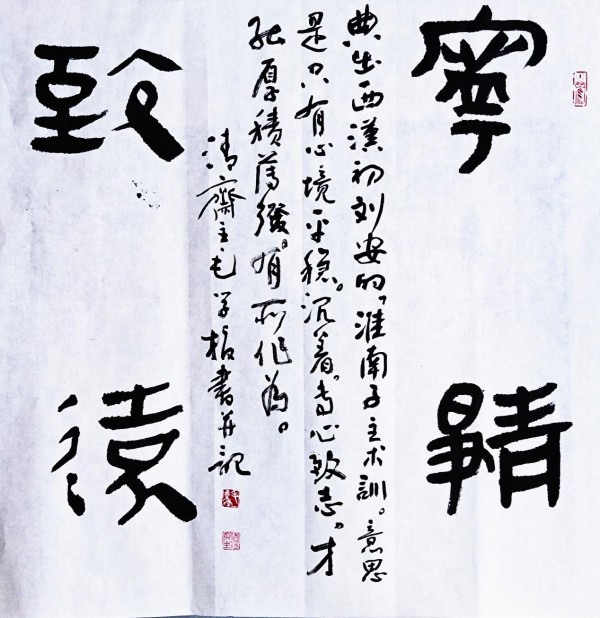 寧靜
典出西漢初刘安的，淮南子主术訓。意思
是只有心境平稳。沉着。专心致志。才
能厚積薄發。有所作為。
清齋主毛学書并記
致遠